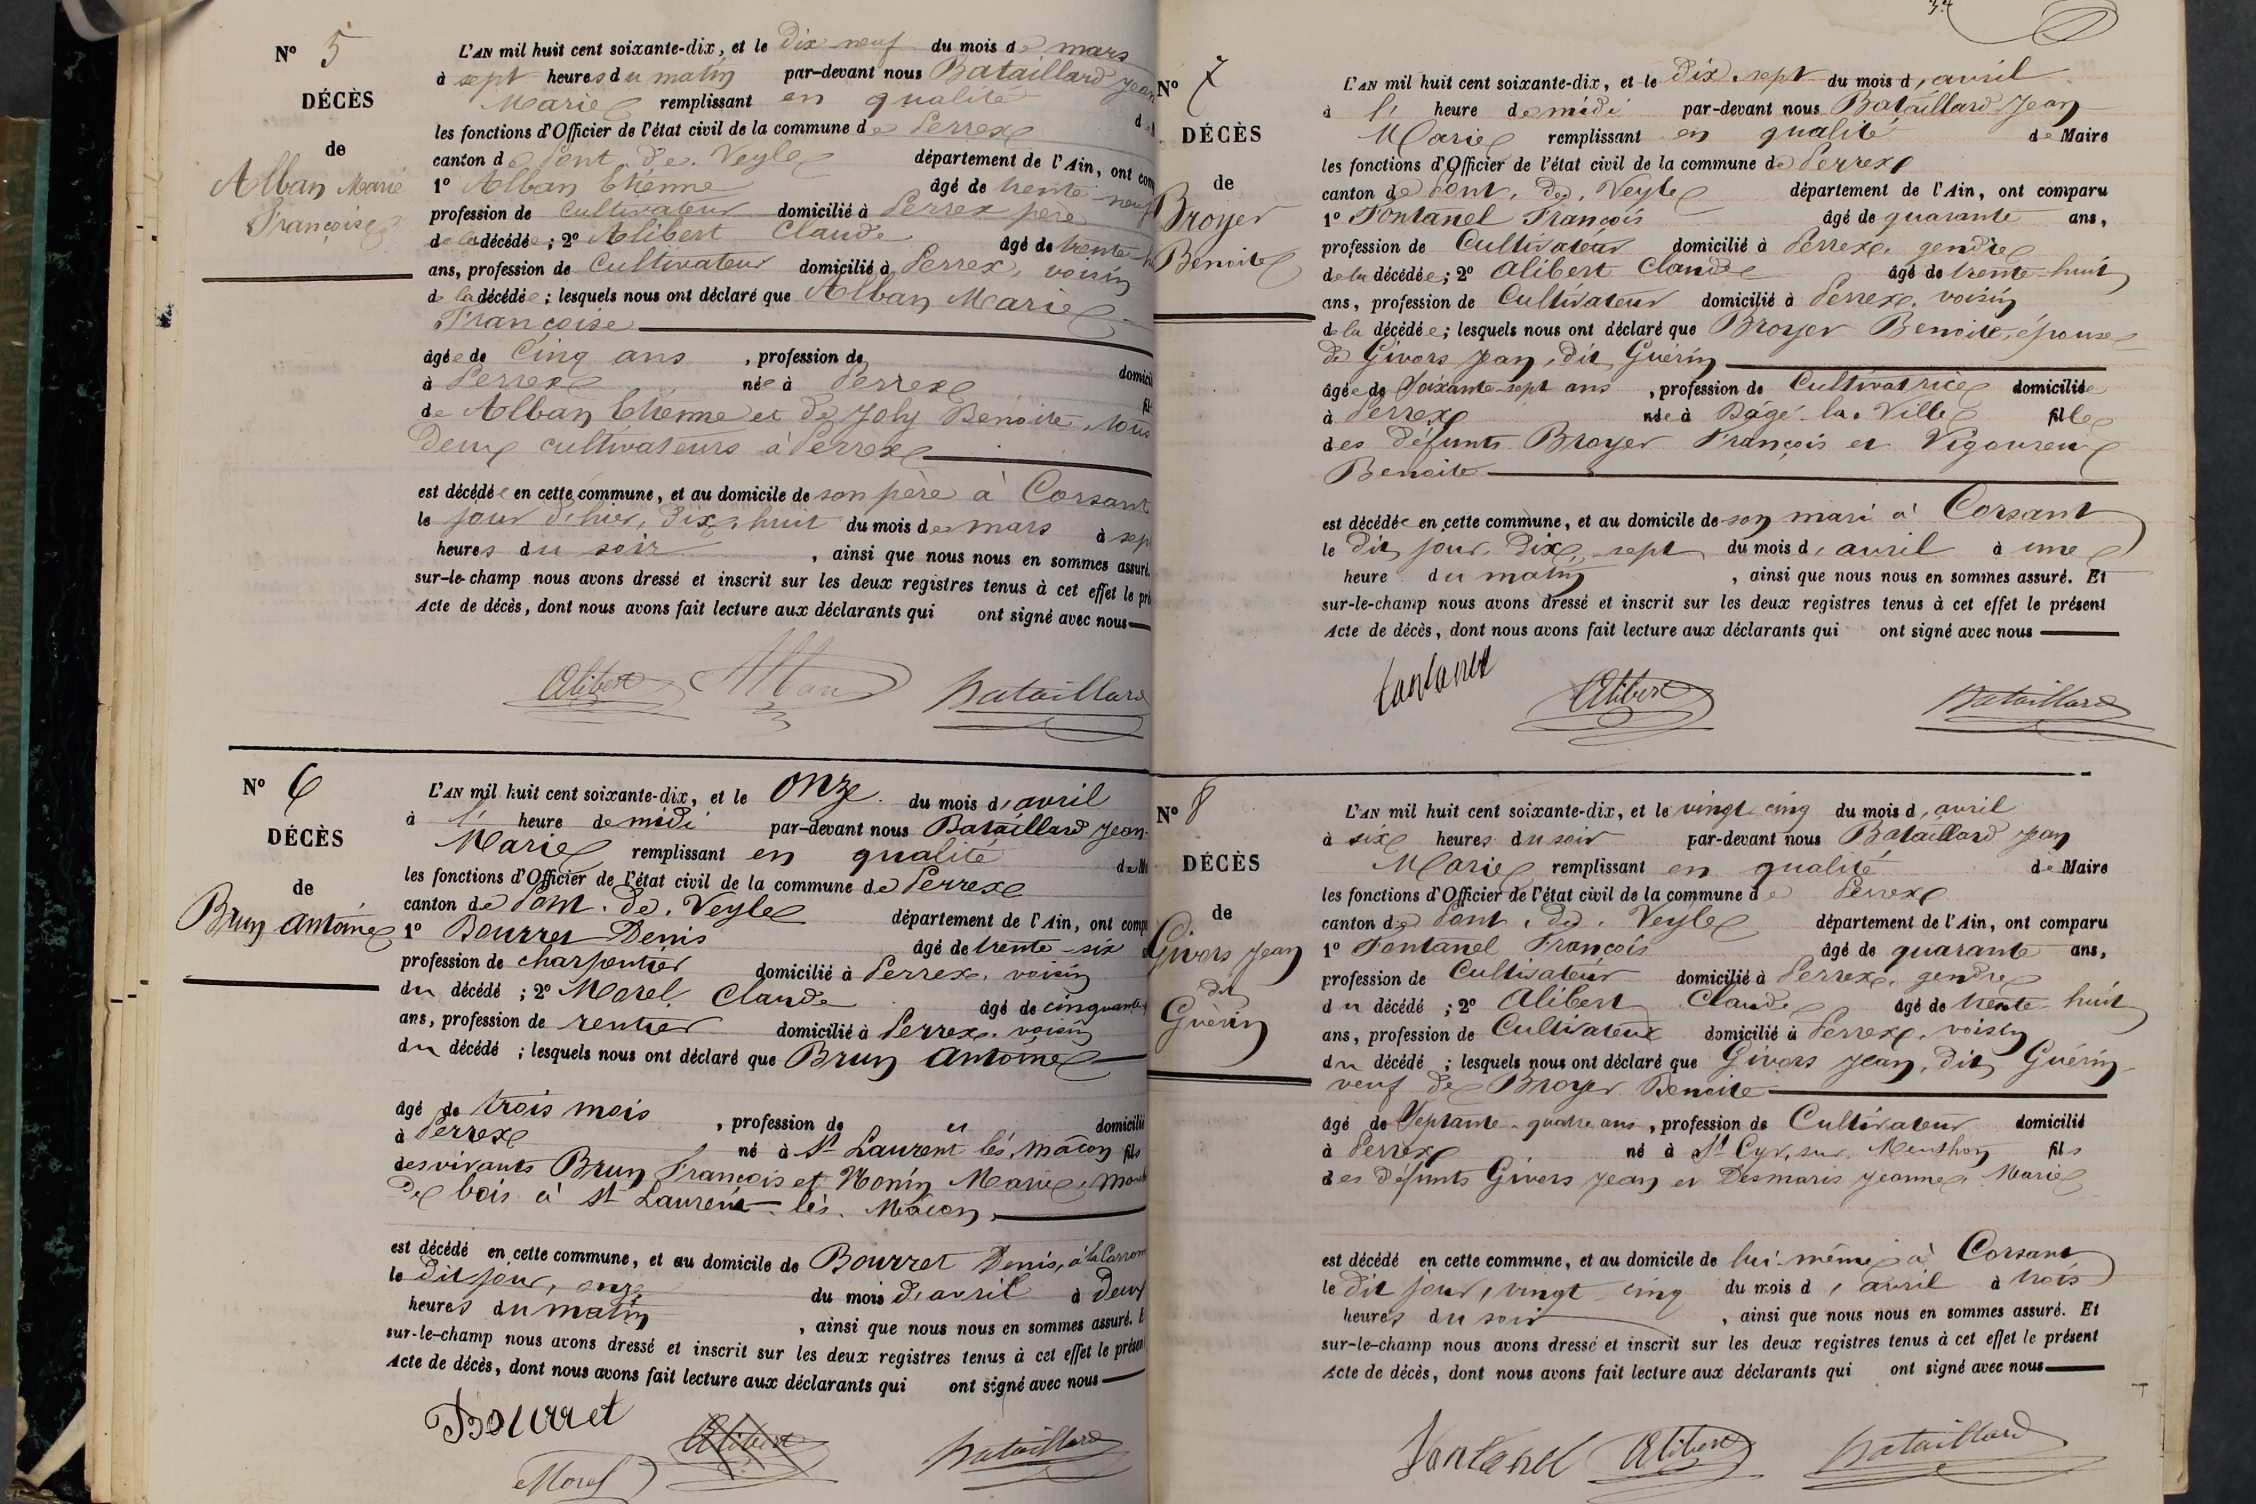 N° 5
DÉCÈS
de
Alban Marie
Françoise
L'AN mil huit cent soixante-dix, et le dix neuf du mois de mars
à sept heures du matin par-devant nous Bataillard Jean
Marie remplissant en qualité
les fonctions d'Officier de l'état civil de la commune de Perrex
canton de Pont. de. Veyle département de l'Ain, ont com
1° Alban Etienne âgé de trente neuf
profession de cultivateur domicilié à Perrex père
de la décédée ; 2° Alibert Claude âgé de trente
ans, profession de Cultivateur domicilié à Perrex, voisin
de la décédée ; lesquels nous ont déclaré que Alban Marie
Françoise
âgée de Cinq ans , profession de domicil
à Perrex née à Perrex
de Alban Etienne et de Joly Benoite, tous
deux cultivateurs à Perrex
est décédée en cette commune, et au domicile de son père à Corsant
le jour d'hier, dix, huit du mois de mars à sept
heures du soir , ainsi que nous nous en sommes assuré.
sur-le-champ nous avons dressé et inscrit sur les deux registres tenus à cet effet le pré
Acte de décès, dont nous avons fait lecture aux déclarants qui ont signé avec nous
Alibert Alban Bataillard
N° 6
DÉCÈS
de
Brun Antoine
L'AN mil huit cent soixante-dix, et le onze du mois d'avril
à l' heure de midi par-devant nous Bataillard Jean
Marie remplissant en qualité de M
les fonctions d'Officier de l'état civil de la commune de Perrex
canton de Pont. de. Veyle département de l'Ain, ont comp
1° Bourret Denis âgé de trente-six
profession de charpentier domicilié à Perrex, voisin
du décédé ; 2° Morel Claude âgé de cinquante
ans, profession de rentier domicilié à Perrex, voisin
du décédé ; lesquels nous ont déclaré que Brun Antoine
âgé de trois mois , profession de " domicilié
à Perrex né à St Laurent lès, Mâcon fils
des vivants Brun François et Monin Marie,
de bois à St Laurent lès. Mâcon,
est décédé en cette commune, et au domicile de Bourret Denis, à la
le dit jour, onze du mois d'avril à deux
heures du matin , ainsi que nous nous en sommes assuré. E
sur-le-champ nous avons dressé et inscrit sur les deux registres tenus à cet effet le présen
Acte de décès, dont nous avons fait lecture aux déclarants qui ont signé avec nous
Bourret Alibert Bataillard
Morel
N° 7
DÉCÈS
de
Broyer
Benoite
L'AN mil huit cent soixante-dix, et le dix. sept du mois d'avril
à l' heure de midi par-devant nous Bataillard Jean
Marie remplissant en qualité de Maire
les fonctions d'Officier de l'état civil de la commune de Perrex
canton de Pont. de. Veyle département de l'Ain, ont comparu
1° Fontanel François âgé de quarante ans,
profession de Cultivateur domicilié à Perrex, gendre
de la décédée ; 2° Alibert Claude âgé de trente-huit
ans, profession de Cultivateur domicilié à Perrex, voisin
de la décédée ; lesquels nous ont déclaré que Broyer Benoite, épouse
de Givors Jean, dit Guérin
âgée de Soixante-sept ans , profession de Cultivatrice domiciliée
à Perrex née à Bâgé-la-Ville fille
des défunts Broyer François et Vigoureux
Benoite
est décédée en cette commune, et au domicile de son mari à Corsant
le dit jour, dix, sept du mois d'avril à une
heure du matin , ainsi que nous nous en sommes assuré. Et
sur-le-champ nous avons dressé et inscrit sur les deux registres tenus à cet effet le présent
Acte de décès, dont nous avons fait lecture aux déclarants qui ont signé avec nous
Fontanel Alibert Bataillard
N° 8
DÉCÈS
de
Givors Jean
dit
Guérin
L'AN mil huit cent soixante-dix, et le vingt cinq du mois d'avril
à six heures du soir par-devant nous Bataillard Jean
Marie remplissant en qualité de Maire
les fonctions d'Officier de l'état civil de la commune de Perrex
canton de Pont. de. Veyle département de l'Ain, ont comparu
1° Fontanel François âgé de quarante ans,
profession de Cultivateur domicilié à Perrex, gendre
du décédé ; 2° Alibert Claude âgé de trente huit
ans, profession de Cultivateur domicilié à Perrex, voisin
du décédé ; lesquels nous ont déclaré que Givors Jean, dit Guérin
veuf de Broyer Benoite
âgé de Septante-quatre ans , profession de Cultivateur domicilié
à Perrex né à St Cyr, sur. Menthon fils
des défunts Givors Jean et Desmaris Jeanne, Marie
est décédé en cette commune, et au domicile de lui-même à Corsant
le dit jour, vingt cinq du mois d'avril à trois
heures du soir , ainsi que nous nous en sommes assuré. Et
sur-le-champ nous avons dressé et inscrit sur les deux registres tenus à cet effet le présent
Acte de décès, dont nous avons fait lecture aux déclarants qui ont signé avec nous
Fontanel Alibert Bataillard